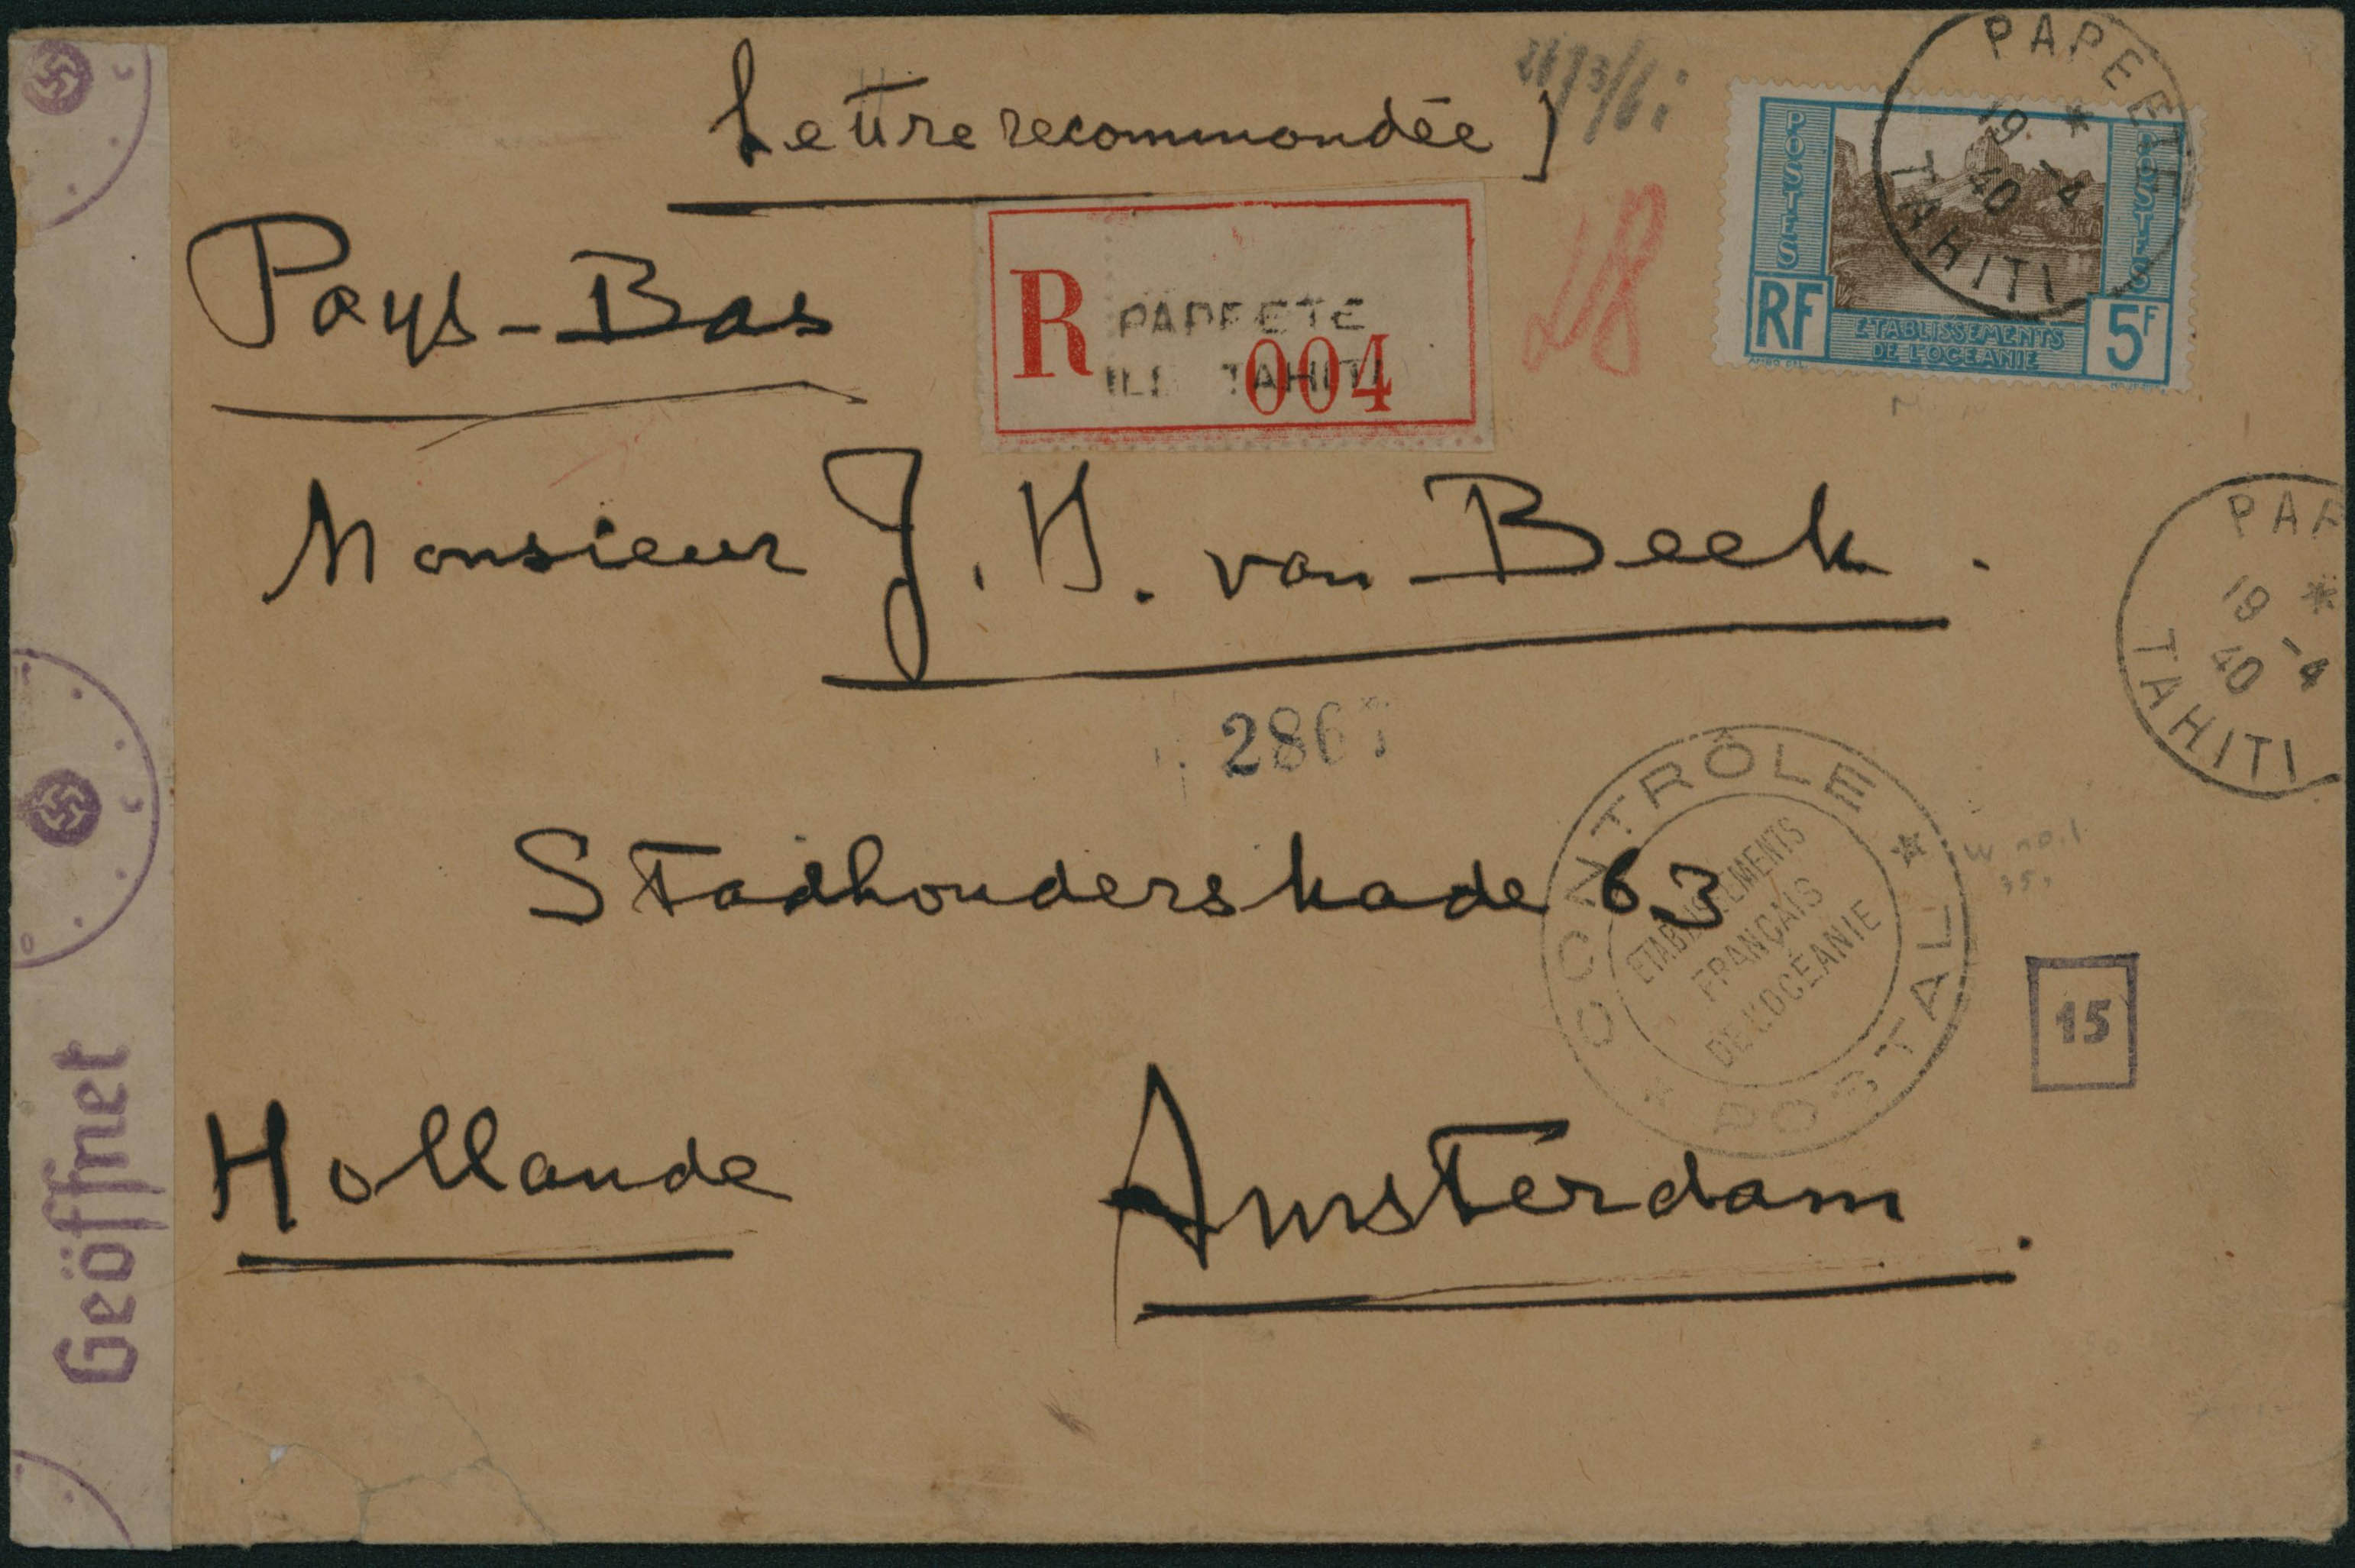 Lettre recommondée
PAPEETE
19 -4
40
TAHITI
POSTES
POSTES
RF
ETABLISSEMENTS
DE L'OCEANIE
5F
Pays-Bas
R
PAPEETE
ILE TAHITI
004
28
Monsieur J. H. van Beek.
PAP
19 -4
40
TAHITI
2867
CONTRÔLE POSTAL
ETABLISSEMENTS
FRANÇAIS
DE L'OCÉANIE
Stadhouderskade 63
15
Hollande
Amsterdam.
Geöffnet